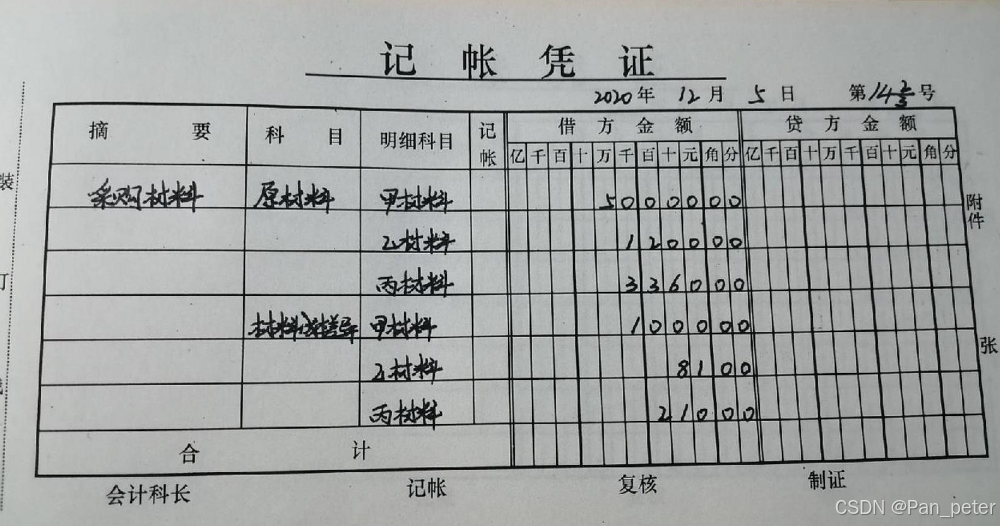 记帐凭证
2020年 12月 5日 第14 2/3号
摘要 科目 明细科目 记帐 借方金额 贷方金额
亿千百十万千百十元角分 亿千百十万千百十元角分
采购材料 原材料 甲材料 5000000
乙材料 120000
丙材料 336000
材料成本差异 甲材料 100000
乙材料 8100
丙材料 21000
合计
附件
张
装
订
会计科长 记帐 复核 制证
CSDN @Pan_peter